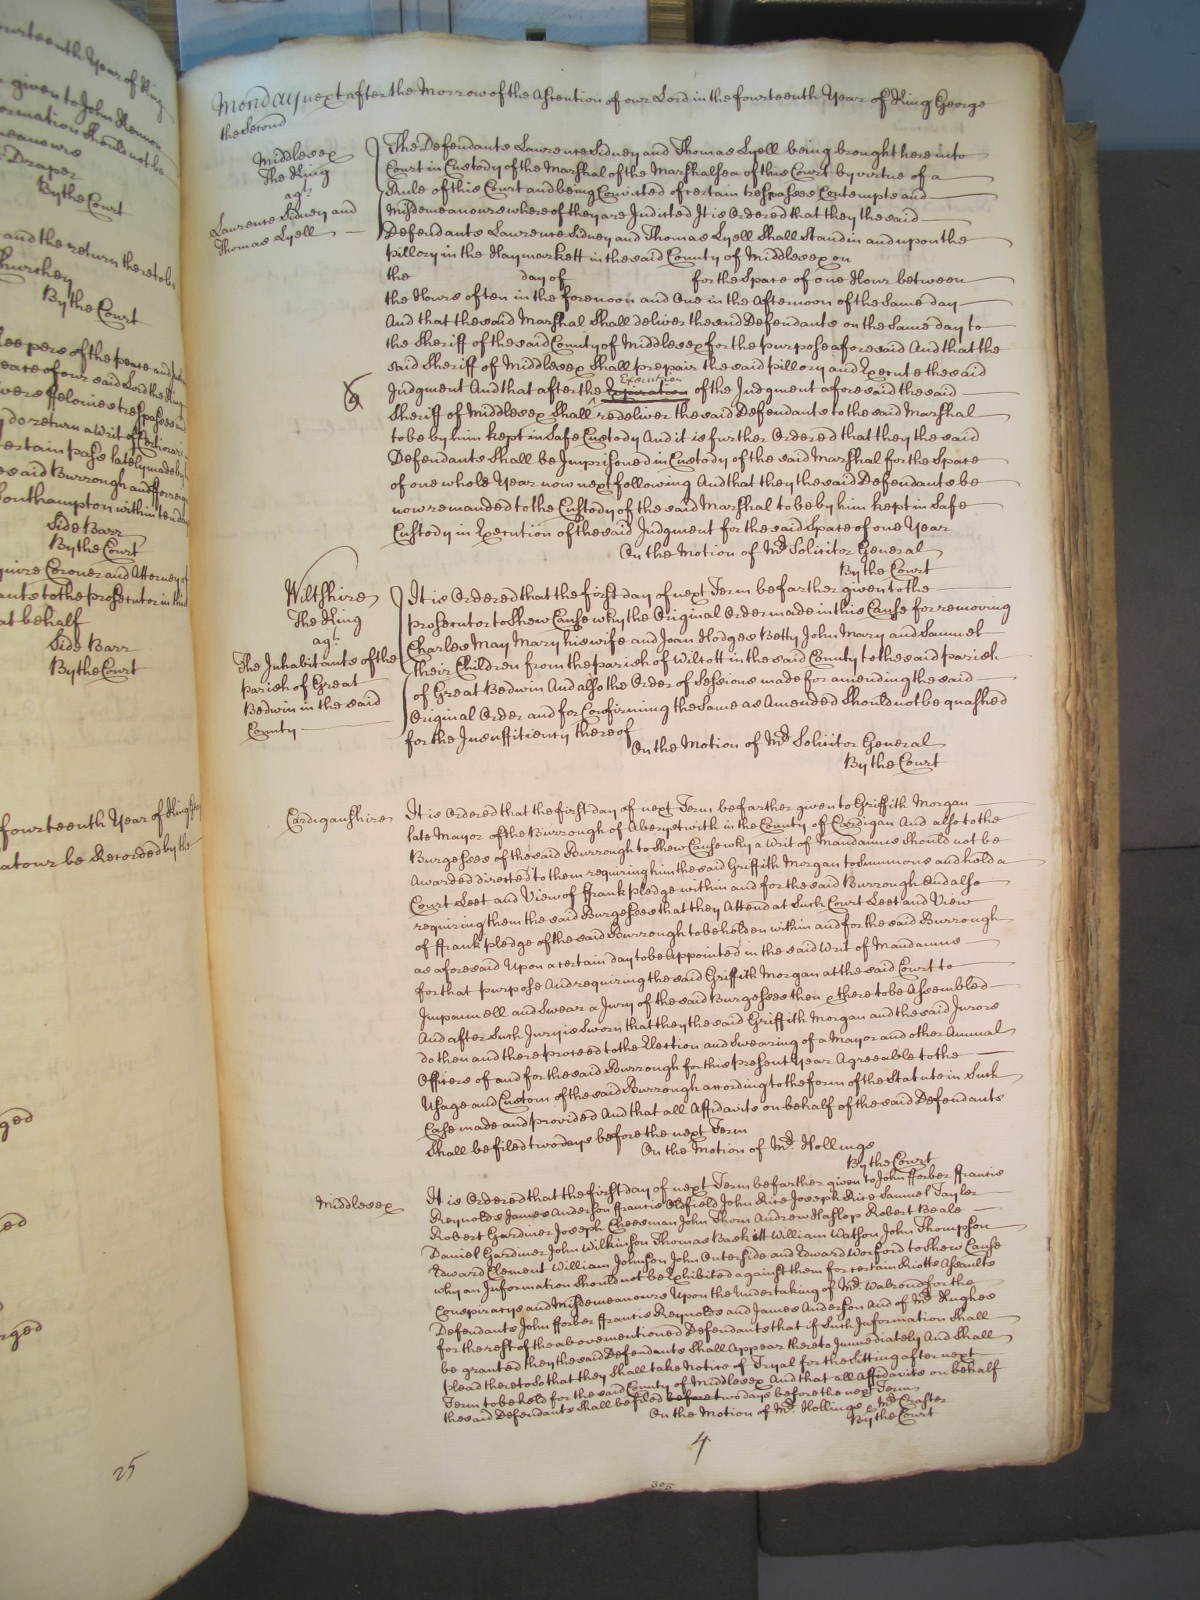 ourteenth Year of King
given to John Kennon
ormation Should not be
meanours
Draper
By the Court
and the return thereto be
Churchey
By the Court
keepers of the peace and
peace of our said Lord the King
divers ffelonies trespasses and
do return a Writ of Certiorari
certain pass lately made by
said Burrough and fforreign
Southampton within ten days
Side Barr
By the Court
quire Coroner and Attorney of
ants to the prosecutor in this
at behalf
Side Barr
By the Court
fourteenth Year of King
at our be Recorded by the
ged
ed
rged
25
Monday next after the Morrow of the Ascention of our Lord in the fourteenth Year of King George
the Second
Middlesex
The King
agt.
Lawrence Sidney and
Thomas Lyell
The Defendants Lawrence Sidney and Thomas Lyell being brought here into
Court in Custody of the Marshal of the Marshalsea of this Court by virtue of a
Rule of this Court and being Convicted of certain trespasses Contempts and
Misdemeanours whereof they are Indicted It is Ordered that they the said
Defendants Lawrence Sidney and Thomas Lyell Shall Stand in and upon the
pillory in the Haymarkett in the said County of Middlesex on
the day of for the Space of one Hour between
the Hours of ten in the forenoon and One in the Afternoon of the Same day
And that the said Marshal Shall deliver the said Defendants on the Same day to
the Sheriff of the said County of Middlesex for the purpose aforesaid And that the
said Sheriff of Middlesex Shall prepair the said pillory and Execute the said
Judgment And that after the Expiration Execution of the Judgment aforesaid the said
Sheriff of Middlesex Shall redeliver the said Defendants to the said Marshal
to be by him kept in Safe Custody And it is further Ordered that they the said
Defendants Shall be Imprisoned in Custody of the said Marshal for the Space
of one whole Year now next following And that they the said Defendants be
now remanded to the Custody of the said Marshal to be by him kept in Safe
Custody in Execution of the said Judgment for the said Space of one Year
On the Motion of Mr. Solicitor General
By the Court
Wiltshire
The King
agt.
The Inhabitants of the
parish of Great
Bedwin in the said
County
It is Ordered that the first day of next Term be farther given to the
prosecutor to Shew Cause why the Original Order made in this Cause for removing
Charles May Mary his wife and Joan Hodges Betty John Mary and Samuel
their Children from the parish of Wilcott in the said County to the said parish
of Great Bedwin And also the Order of Sessions made for amending the said
Original Order and for Confirming the Same as Amended Should not be quashed
for the Insufficiency thereof
On the Motion of Mr. Solicitor General
By the Court
Cardiganshire
It is Ordered that the first day of next Term be farther given to Griffith Morgan
late Mayor of the Burrough of Aberystwith in the County of Cardigan And also to the
Burgesses of the said Burrough to Shew Cause why a Writ of Mandamus Should not be
Awarded directed to them requiring him the said Griffith Morgan to Summons and hold a
Court Leet and View of ffrank pledge within and for the said Burrough And also
requiring them the said Burgesses that they Attend at Such Court Leet and View
of ffrank pledge of the said Burrough to be holden within and for the said Burrough
as aforesaid Upon a certain day to be Appointed in the said Writ of Mandamus
for that purpose And requiring the said Griffith Morgan at the said Court to
Impannell and Swear a Jury of the said Burgesses then & there to be Assembled
And after Such Jury is Sworn that they the said Griffith Morgan and the said Jurors
do then and there proceed to the Election and Swearing of a Mayor and other Annual
Officers of and for the said Burrough for this present Year Agreeable to the
Usage and Custom of the said Burrough according to the form of the Statute in Such
Case made and provided And that all Affidavits on behalf of the said Defendants
Shall be filed two days before the next Term
On the Motion of Mr. Hollings
By the Court
Middlesex
It is Ordered that the first day of next Term be farther given to John fforber ffrancis
Reynolds James Anderson ffrancis Oldfield John Rice Joseph Rice Samuel Tayler
Robert Gardiner Joseph Cheesman John Thorn Andrew Haslop Robert Beale
Daniel Gardiner John Wilkinson Thomas Baskitt William Watson John Thompson
Edward Clement William Johnson John Outerside and Edward Worford to Shew Cause
why an Information Should not be Exhibited against them for certain Riotts Assaults
Conspiracys and Misdemeanours Upon the Undertaking of Mr. Walrond for the
Defendants John fforber ffrancis Reynolds and James Anderson And of Mr. Hughes
for the rest of the abovementioned Defendants that if Such Information Shall
be granted they the said Defendants Shall Appear thereto Immediately And Shall
plead thereto So that they Shall take Notice of Tryal for the Sitting after next
Term to be held for the said County of Middlesex And that all Affidavits on behalf
the said Defendants Shall be filed before two days before the next Term
On the Motion of Mr. Hollings & Mr. Crafter
By the Court
4
305